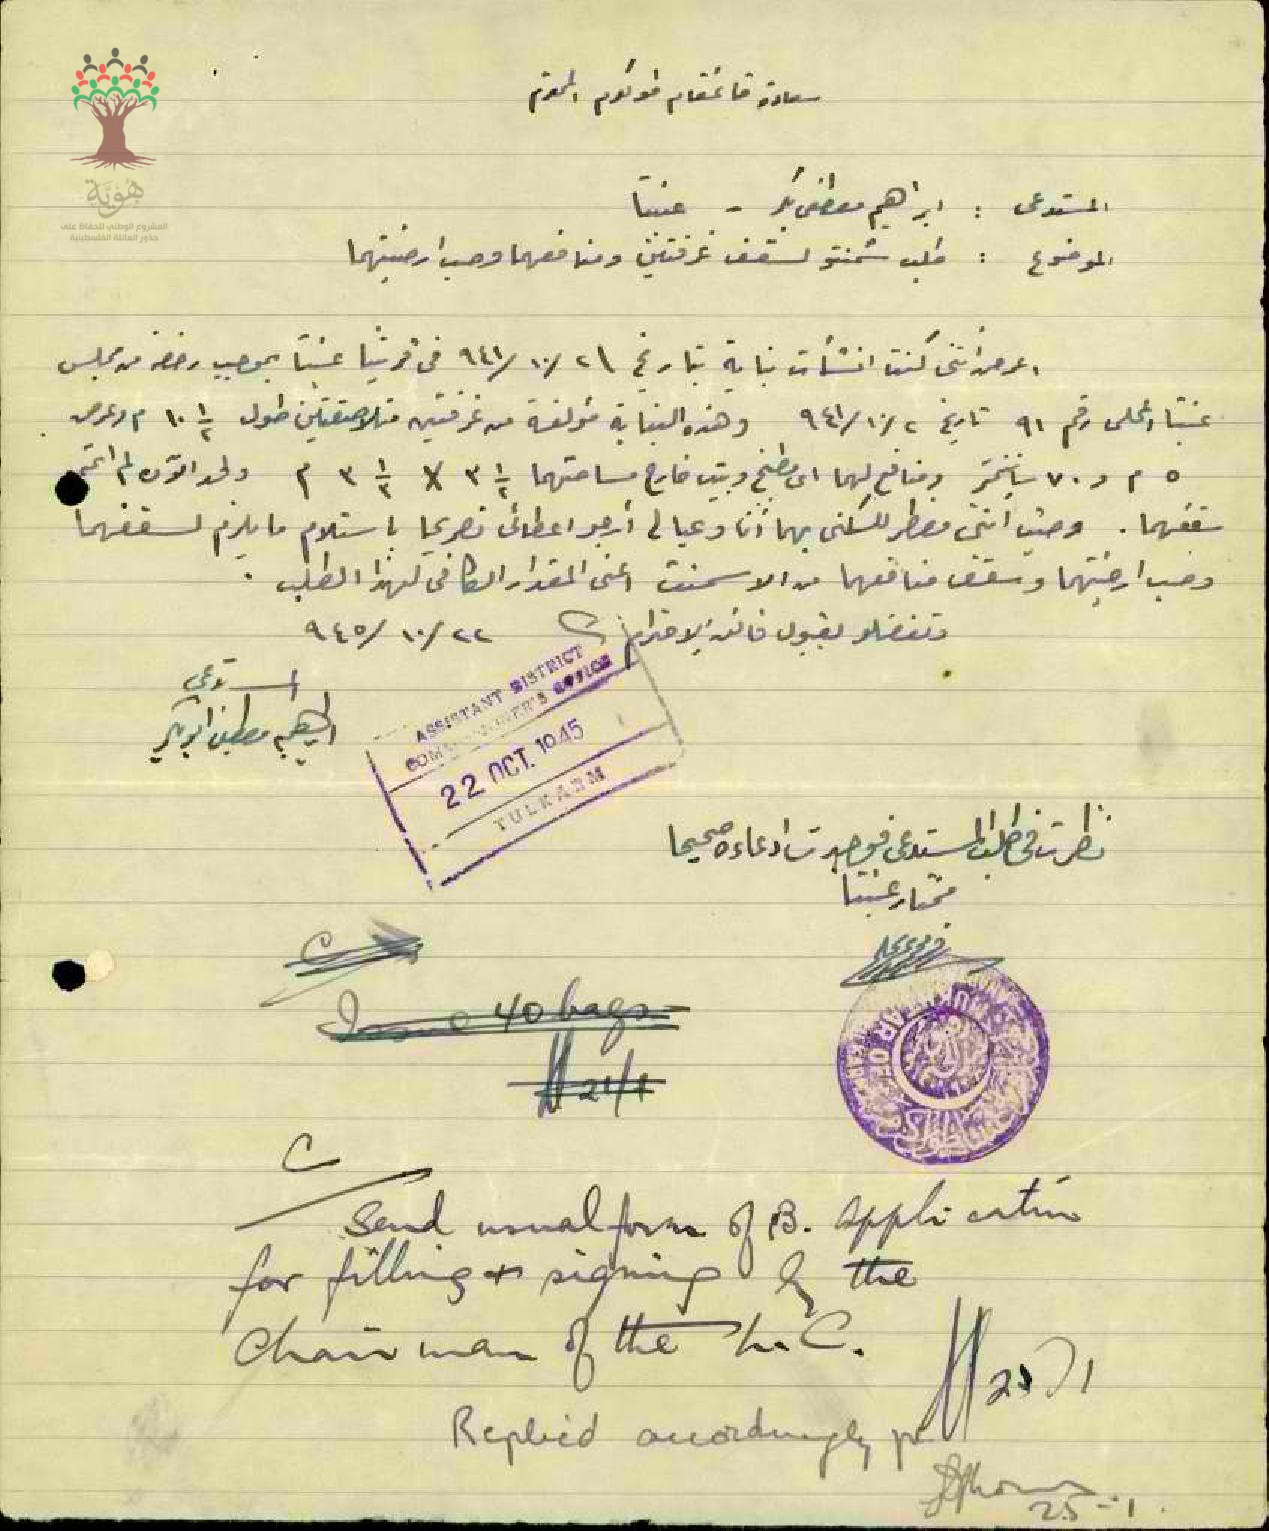 هُوِيَّة
المشروع الوطني للحفاظ على
جذور العائلة الفلسطينية
سعادة قائمقام طولكرم المحترم
المستدعي : ابراهيم مصطفى بكر - عنبتا
الموضوع : طلب شمنتو لسقف غرفتين ومنافعهما وصب ارضيتهما
اعرض انني كنت انشأت بناية بتاريخ ٢١/١٠/٩٤١ في قريتنا عنبتا بموجب رخصة من مجلس
عنبتا المحلي رقم ٩١ تاريخ ٢/١٠/٩٤١ وهذه البناية مؤلفة من غرفتين متلاصقتين طول ١٠ ١/٢ م وعرض
٥ م و ٧٠ سانتمتر ومنافع لهما اي مطبخ وبيت خارج مساحتهما ٣ ١/٢ X ٣ ١/٢ م ولحد الآن لم اتمم
سقفهما . وحيث انني مضطر للسكنى بهما أنا وعيالي أرجو اعطائي تصريحا باستلام ما يلزم لسقفهما
وصب ارضيتهما وسقف منافعهما من الاسمنت اعني المقدار الكافي لهذا الطلب .
وتفضلو بقبول فائق الاحترام ٢٢/١٠/٩٤٥
المستدعي
ابراهيم مصطفى ابو بكر
ASSISTANT DISTRICT
COMMISSIONER'S OFFICE
22 OCT. 1945
TULKARM
نظرت في طلب المستدعي فوجدت ادعاءه صحيحا
مختار عنبتا
C
Issue 40 bags
21/1
MUKHTAR OF
C
Send usual form of B. application
for filling & signing by the
Chairman of the L.C.
25/1
Replied accordingly pr.
25-1.